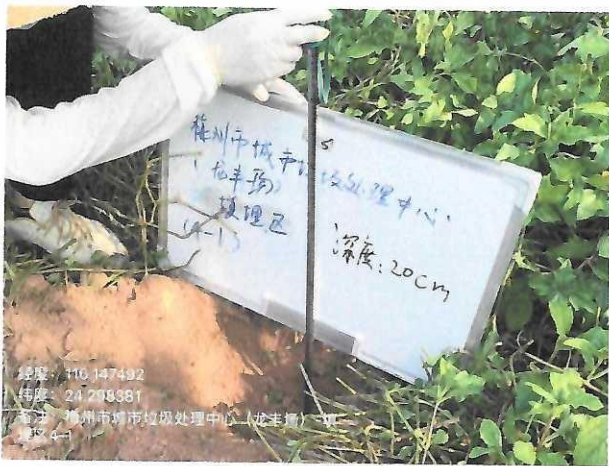 梅州市城市垃圾处理中心
(龙丰场)
填埋区
(4-1)
深度:20cm
经度:116.147492
纬度:24.298381
备注:梅州市城市垃圾处理中心(龙丰场)填
埋区4-1